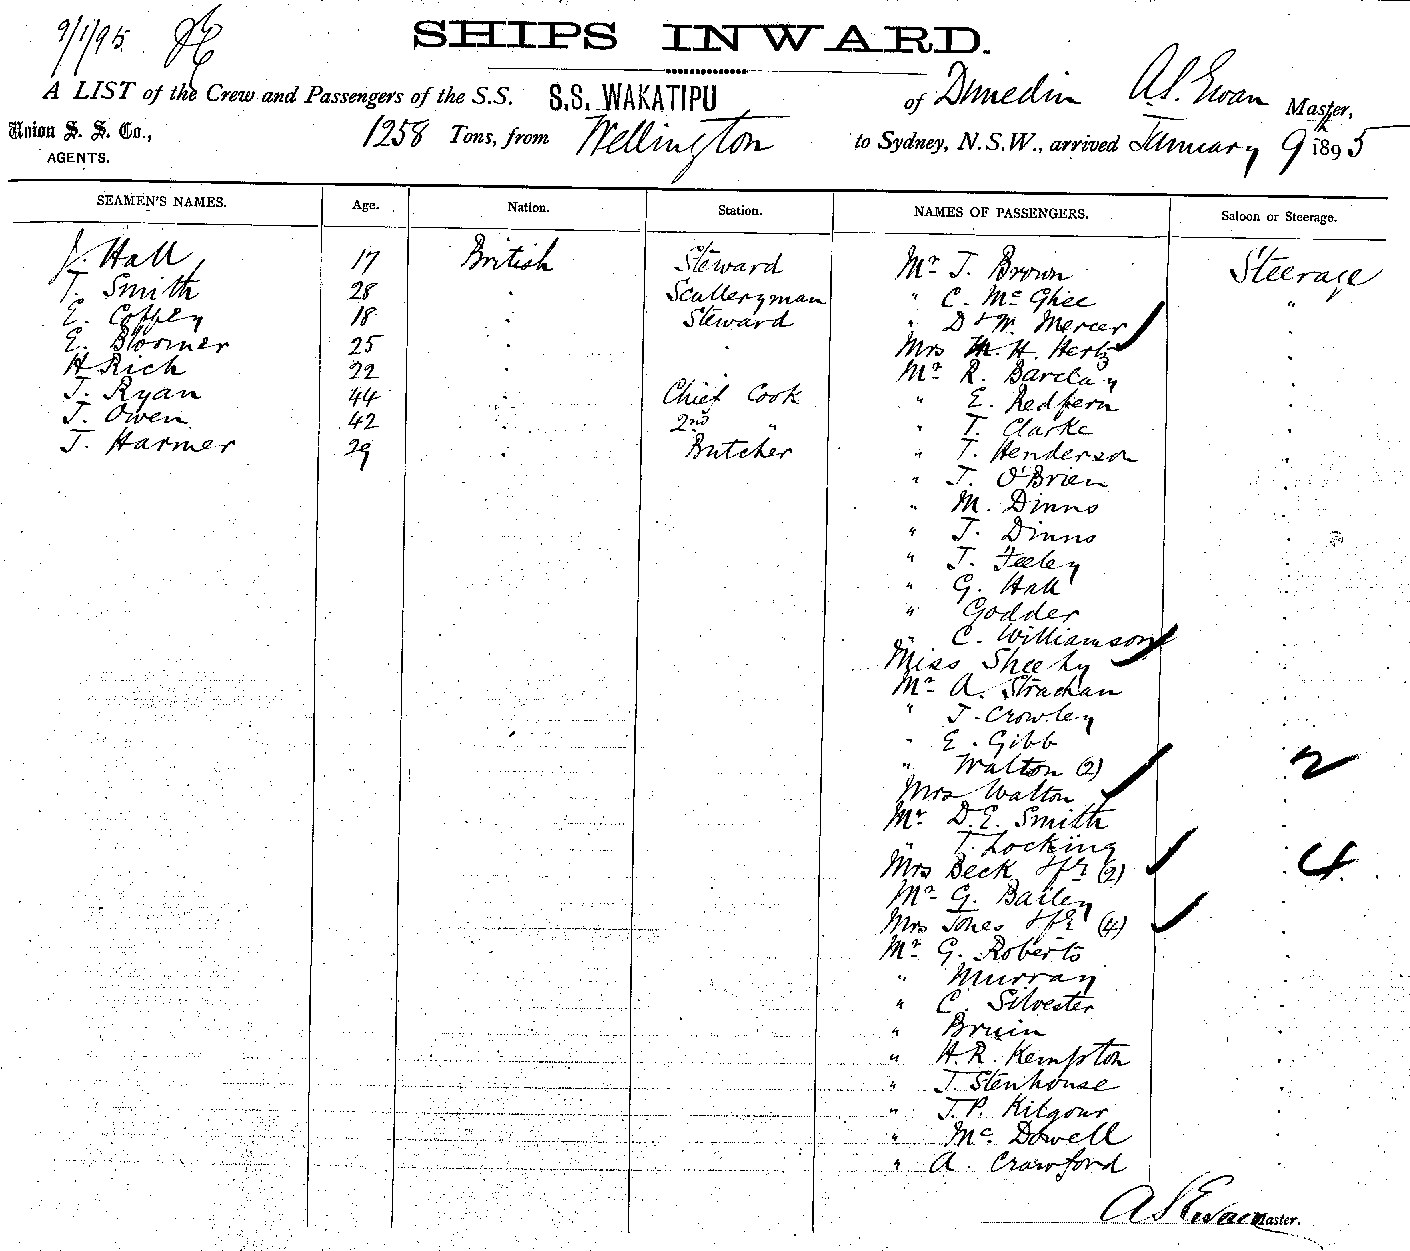 9/1/95.
SHIPS INWARD.
A LIST of the Crew and Passengers of the S.S. S.S. WAKATIPU of Dunedin A.S. Ewan Master,
Union S. S. Co., AGENTS. 1258 Tons, from Wellington to Sydney, N.S.W., arrived January 9th 1895
SEAMEN'S NAMES. Age. Nation. Station. NAMES OF PASSENGERS. Saloon or Steerage.
J. Hall 17 British Steward Mr J. Brown Steerage
T. Smith 28 " Sculleryman " C. McGhee "
E. Coffey 18 " Steward " D & W. Mercer "
E. Bloomer 25 " " Mrs M. H. Hertz "
H Rich 22 " " Mr R. Barclay "
J. Ryan 44 " Chief Cook " E. Redfern "
J. Owen 42 " 2nd " " T. Clarke "
J. Harmer 29 " Butcher " T. Henderson "
" J. O'Brien "
" M. Dinns "
" J. Dinns "
" J. Feeley "
" G. Hall "
" Godder "
" C. Williamson "
Miss Sheehy "
Mr A. Strachan "
" J. Crowley "
" E. Gibb "
" Walton (2) " 2
Mrs Walton "
Mr D. E. Smith "
" T. Locking "
Mrs Beck & fr (2) " 4
Mr G. Bailey "
Mrs Jones & fr (4) "
Mr G. Roberts "
" Murray "
" C. Silvester "
" Bruin "
" H. R. Kempton "
" J. Stenhouse "
" J. P. Kilgour "
" McDowell "
" A. Crawford "
A S Ewan Master.